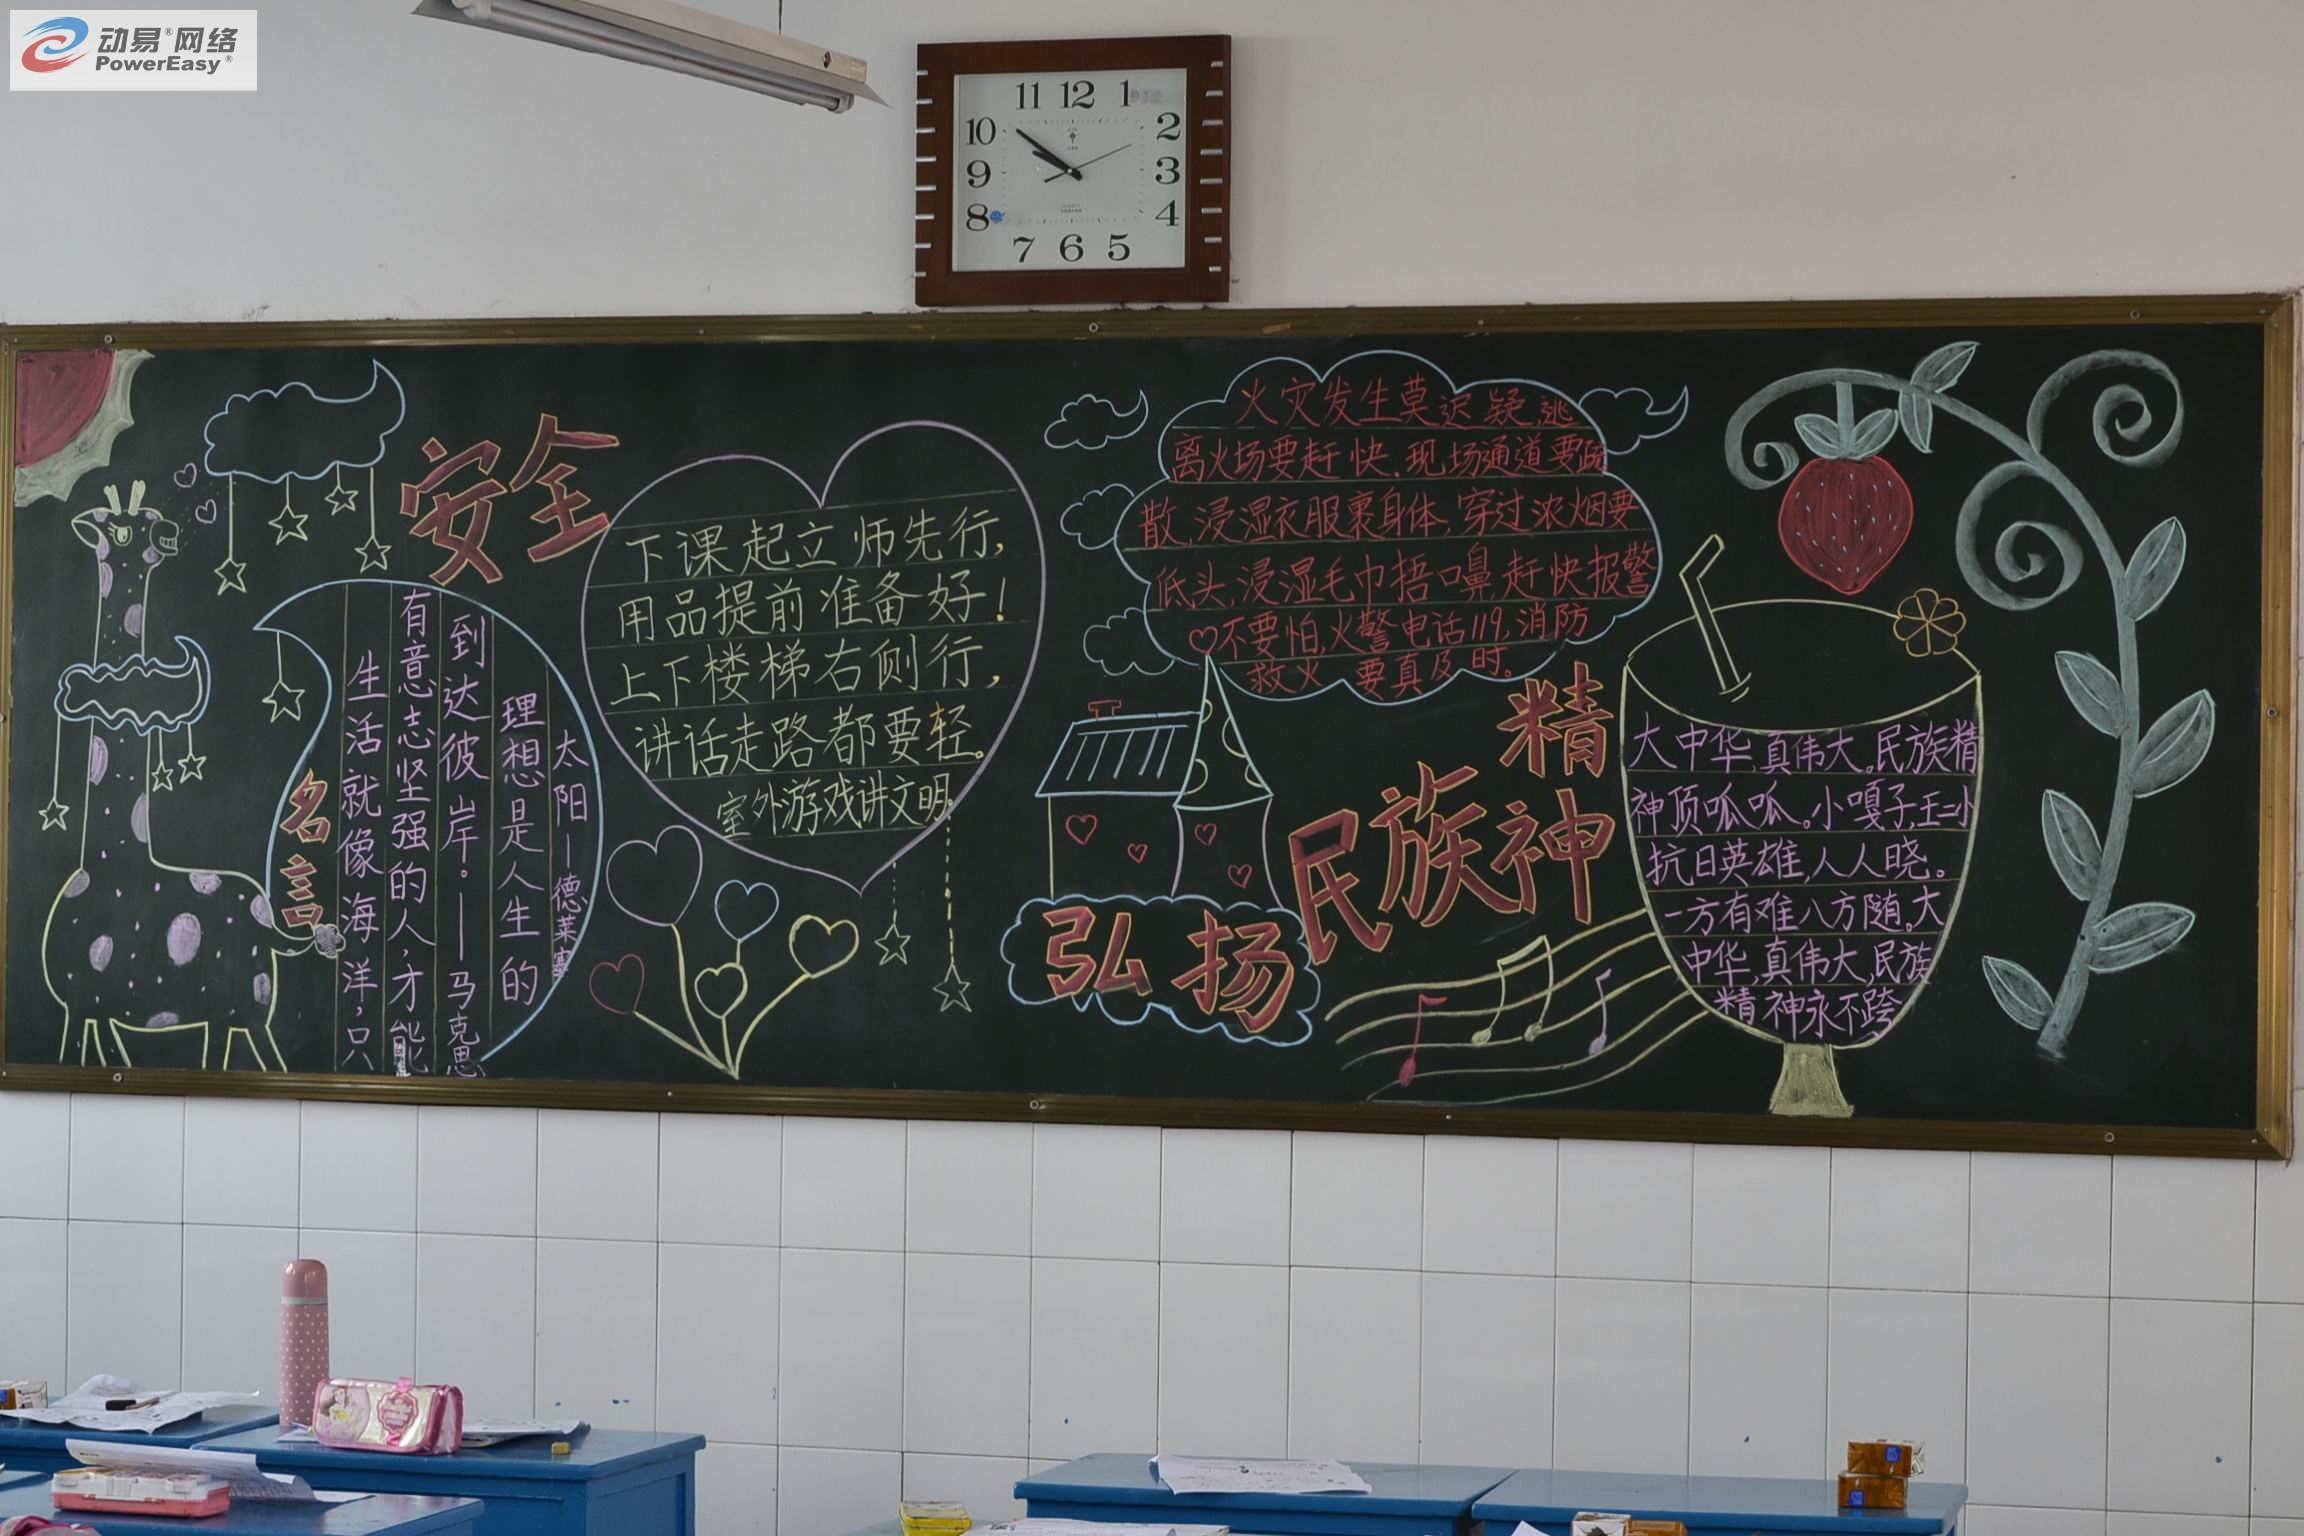 动易®网络
PowerEasy®
11 12 1
10 2
9 3
8 4
7 6 5
安全
名言
生活就像海洋，只
有意志坚强的人，才能
到达彼岸。——马克思
理想是人生的
太阳—德莱塞
下课起立师先行，
用品提前准备好！
上下楼梯右侧行，
讲话走路都要轻。
室外游戏讲文明。
火灾发生莫迟疑，逃
离火场要赶快．现场通道要疏
散，浸湿衣服裹身体，穿过浓烟要
低头，浸湿毛巾捂口鼻，赶快报警
不要怕，火警电话119，消防
救火 要真及时。
弘扬
民族精神
大中华，真伟大。民族精
神顶呱呱。小嘎子，王二小
抗日英雄，人人晓。
一方有难八方随。大
中华，真伟大，民族
精神永不跨